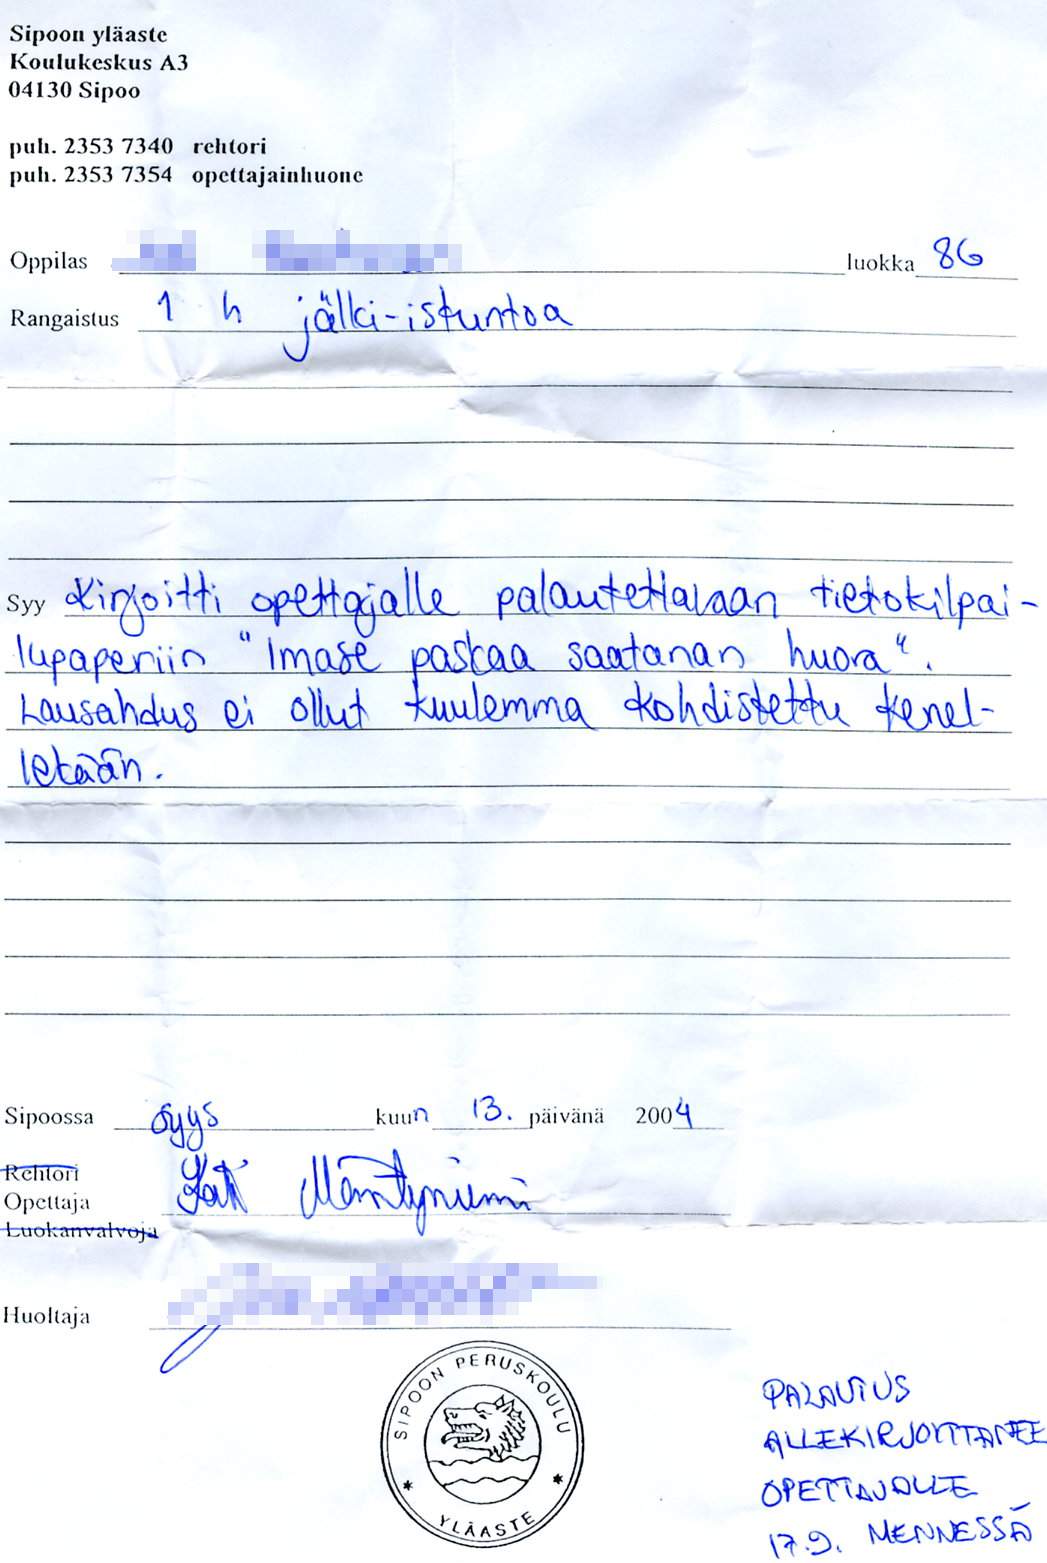 Sipoon yläaste
Koulukeskus A3
04130 Sipoo
puh. 2353 7340 rehtori
puh. 2353 7354 opettajainhuone
Oppilas luokka 8G
Rangaistus 1 h jälki-istuntoa
Syy Kirjoitti opettajalle palautettavaan tietokilpai-
lupaperiin "Imase paskaa saatanan huora".
Lausahdus ei ollut kuulemma kohdistettu kenel-
lekään.
Sipoossa syys kuun 13. päivänä 2004
Rehtori
Opettaja Mäntyniemi
Luokanvalvoja
Huoltaja
SIPOON PERUSKOULU
YLÄASTE
PALAUTUS
ALLEKIRJOITTANEE
OPETTAJALLE
17.9. MENNESSÄ